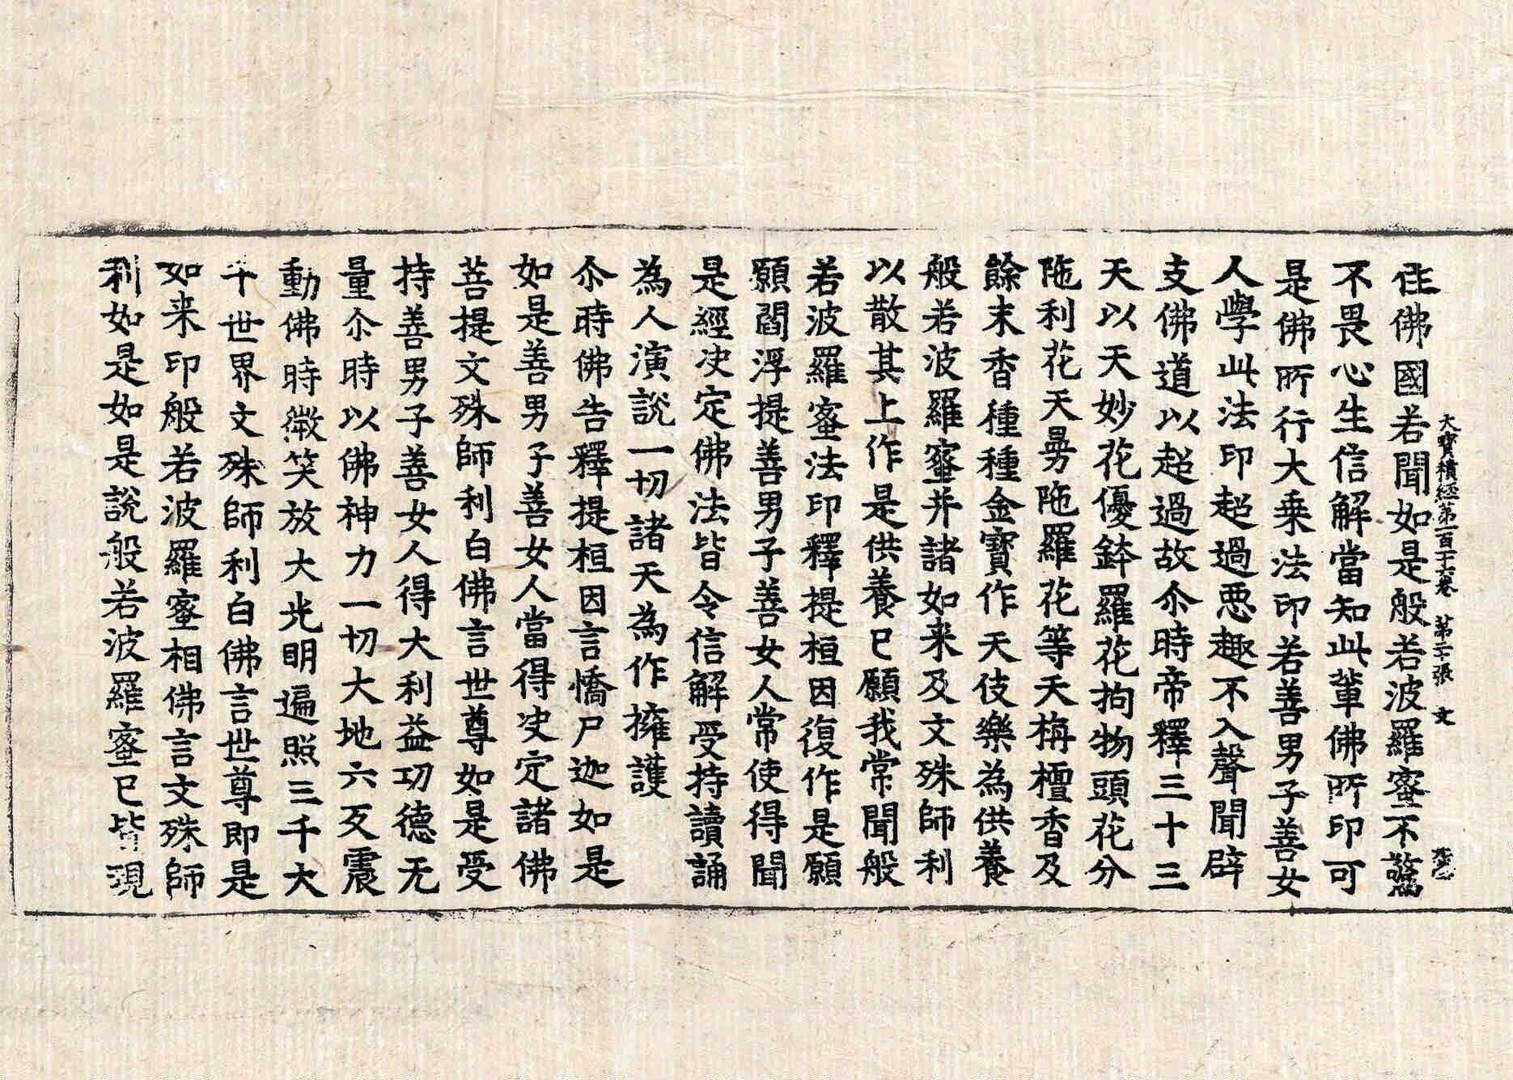 大寶積經第一百十六卷 第二十張 文
住佛國若聞如是般若波羅蜜不驚
不畏心生信解當知此輩佛所印可
是佛所行大乗法印若善男子善女
人學此法印超過惡趣不入聲聞辟
支佛道以超過故尒時帝釋三十三
天以天妙花優鉢羅花拘物頭花分
陁利花天曼陁羅花等天栴檀香及
餘末香種種金寶作天伎樂為供養
般若波羅蜜并諸如来及文殊師利
以散其上作是供養已願我常聞般
若波羅蜜法印釋提桓因復作是願
願閻浮提善男子善女人常使得聞
是經决定佛法皆令信解受持讀誦
為人演說一切諸天為作擁護
尒時佛告釋提桓因言憍尸迦如是
如是善男子善女人當得决定諸佛
菩提文殊師利白佛言世尊如是受
持善男子善女人得大利益功德无
量尒時以佛神力一切大地六反震
動佛時微笑放大光明遍照三千大
千世界文殊師利白佛言世尊即是
如来印般若波羅蜜相佛言文殊師
利如是如是說般若波羅蜜已皆現